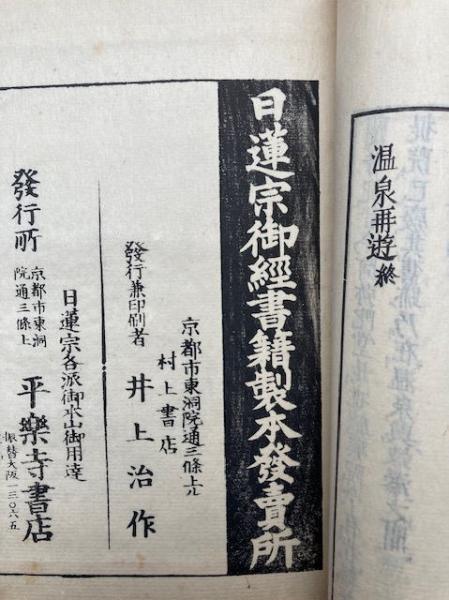 温泉再遊終
日蓮宗御經書籍製本發賣所
京都市東洞院通三條上ル
村上書店
發行兼印刷者 井上治作
日蓮宗各派御本山御用達
發行所 京都市東洞院通三條上 平樂寺書店
振替大阪一三〇六五